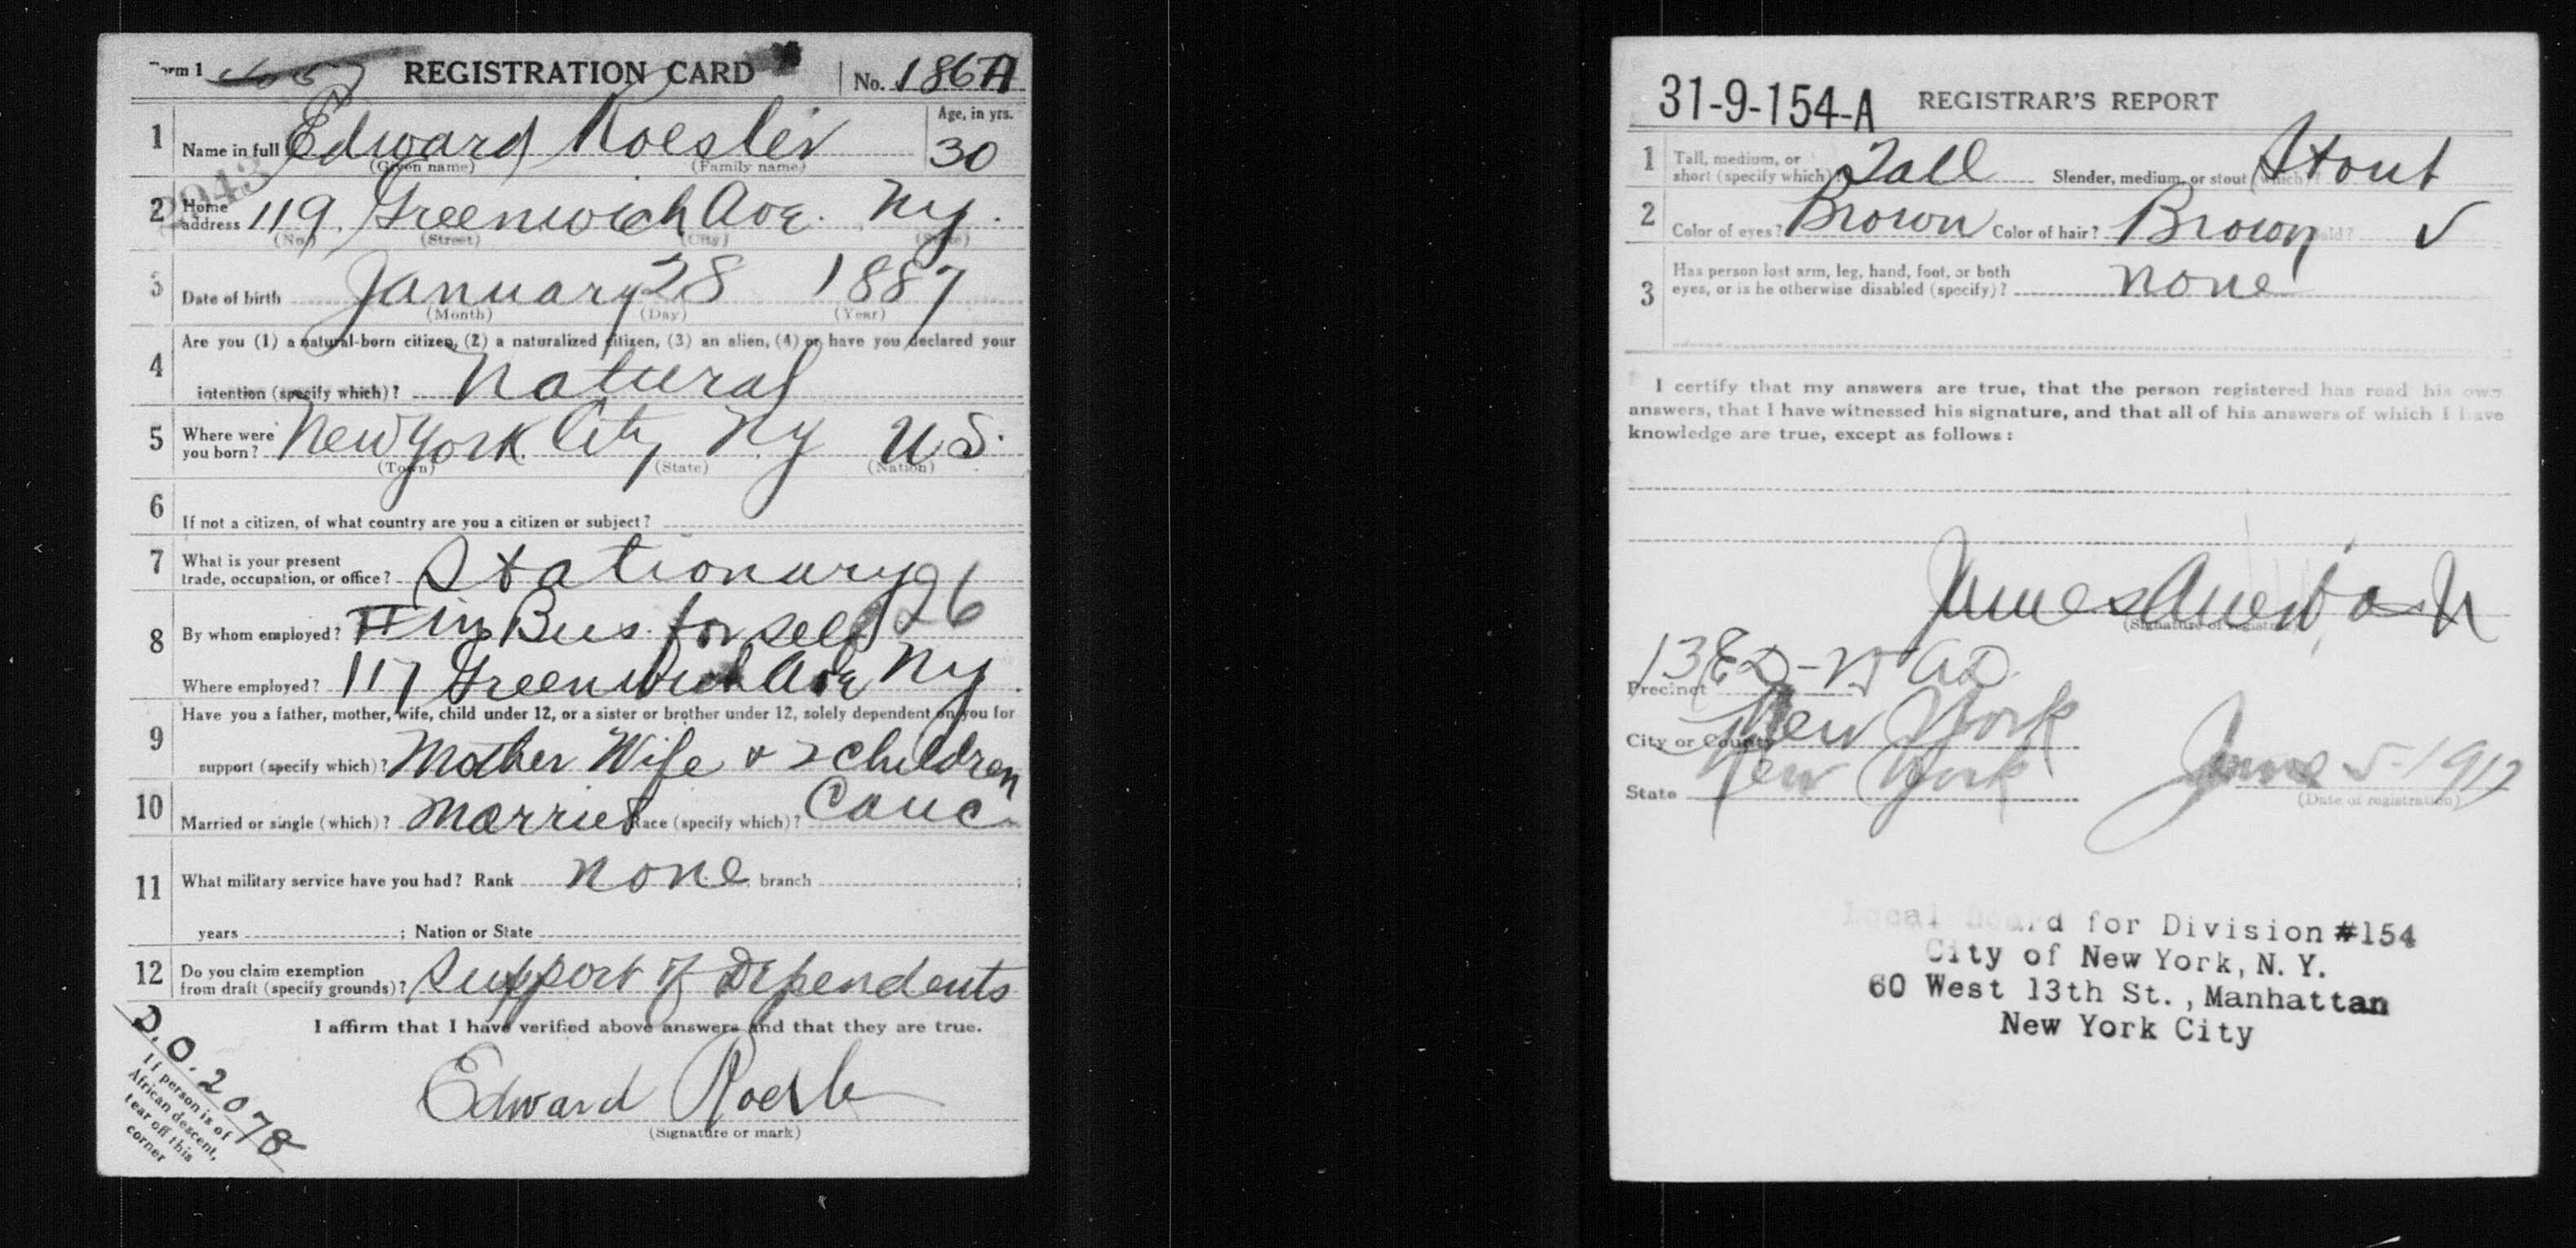 Form 1
REGISTRATION CARD No. 186 A
1 Name in full Edward Roesler Age, in yrs. 30
(Given name) (Family name)
2943
2 Home address 119 Greenwich Ave. Ny.
(No.) (Street) (City) (State)
3 Date of birth January 28 1887
(Month) (Day) (Year)
4 Are you (1) a natural-born citizen, (2) a naturalized citizen, (3) an alien, (4) or have you declared your
intention (specify which)? Natural
5 Where were you born? New York City Ny US.
(Town) (State) (Nation)
6 If not a citizen, of what country are you a citizen or subject?
7 What is your present trade, occupation, or office? Stationary 26
8 By whom employed? in Bus. for self
Where employed? 117 Greenwich Ave Ny
9 Have you a father, mother, wife, child under 12, or a sister or brother under 12, solely dependent on you for
support (specify which)? Mother Wife + 2 children
10 Married or single (which)? Married Race (specify which)? Cauc
11 What military service have you had? Rank none branch ;
years ; Nation or State
12 Do you claim exemption from draft (specify grounds)? Support of Dependents
I affirm that I have verified above answers and that they are true.
Edward Roesler
(Signature or mark)
D.O. 2078
If person is of
African descent,
tear off this
corner
31-9-154-A REGISTRAR'S REPORT
1 Tall, medium, or short (specify which)? Tall Slender, medium, or stout (which)? Stout
2 Color of eyes? Brown Color of hair? Brown Bald? ✓
3 Has person lost arm, leg, hand, foot, or both
eyes, or is he otherwise disabled (specify)? none
I certify that my answers are true, that the person registered has read his own
answers, that I have witnessed his signature, and that all of his answers of which I have
knowledge are true, except as follows:
James
(Signature of registrar)
Precinct 13 ED- AD.
City or County New York
State New York June 5-1917
(Date of registration)
Local Board for Division #154
City of New York, N. Y.
60 West 13th St., Manhattan
New York City